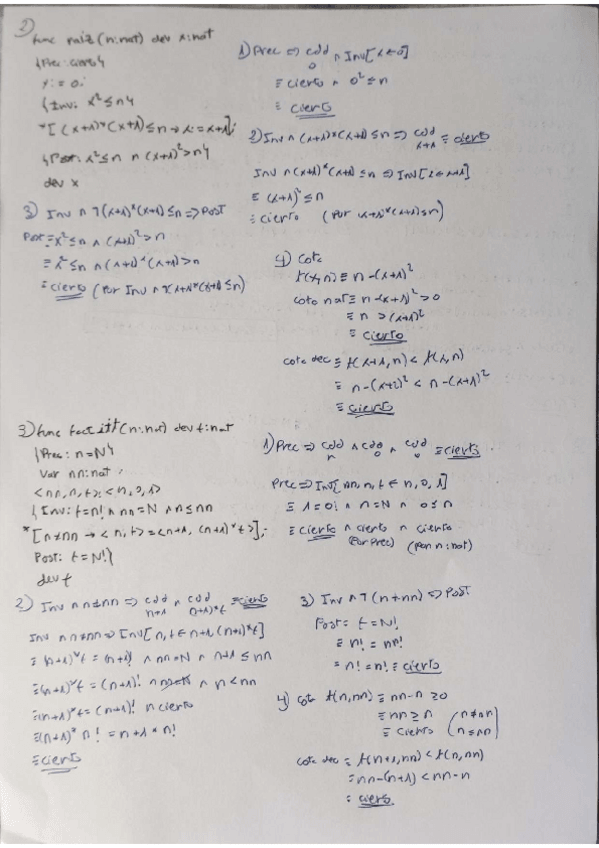 2) func raiz (n:nat) dev x:nat
{Prec: cierto}
x:= 0;
{Inv: x² ≤ n}
*[ (x+1)*(x+1) ≤ n → x:= x+1];
{Post: x² ≤ n ∧ (x+1)² > n}
dev x
1) Prec ⇒ cdd 0 ∧ Inv[x←0]
≡ cierto ∧ 0² ≤ n
≡ cierto
2) Inv ∧ (x+1)*(x+1) ≤ n ⇒ cdd x+1 ≡ cierto
Inv ∧ (x+1)*(x+1) ≤ n ⇒ Inv[x←x+1]
≡ (x+1)² ≤ n
≡ cierto (Por (x+1)*(x+1) ≤ n)
3) Inv ∧ ¬(x+1)*(x+1) ≤ n ⇒ Post
Post ≡ x² ≤ n ∧ (x+1)² > n
≡ x² ≤ n ∧ (x+1)*(x+1) > n
≡ cierto (Por Inv ∧ ¬(x+1)*(x+1) ≤ n)
4) Cota
t(x,n) ≡ n-(x+1)²
cota nat ≡ n-(x+1)² > 0
≡ n > (x+1)²
≡ cierto
cota dec ≡ t(x+1,n) < t(x,n)
≡ n-(x+2)² < n-(x+1)²
≡ cierto
3) func factitt (n:nat) dev t:nat
{Prec: n=N}
Var nn:nat;
<nn,n,t>:=<n,0,1>
{Inv: t=n! ∧ nn=N ∧ n≤nn
*[n≠nn → <n,t>=<n+1, (n+1)*t>];
Post: t=N!}
dev t
1) Prec ⇒ cdd n ∧ cdd 0 ∧ cdd 0 ≡ cierto
Prec ⇒ Inv[nn,n,t ← n,0,1]
≡ 1=0! ∧ n=N ∧ 0≤n
≡ cierto ∧ cierto ∧ cierto
(Por Prec) (Por n:nat)
2) Inv ∧ n≠nn ⇒ cdd n+1 ∧ cdd (n+1)*t ≡ cierto
Inv ∧ n≠nn ⇒ Inv[n,t ← n+1,(n+1)*t]
≡ (n+1)*t = (n+1)! ∧ nn=N ∧ n+1 ≤ nn
≡ (n+1)*t = (n+1)! ∧ nn=N ∧ n<nn
≡ (n+1)*t = (n+1)! ∧ cierto
≡ (n+1)* n! = n+1 * n!
≡ cierto
3) Inv ∧ ¬(n≠nn) ⇒ Post
Post: t=N!
≡ n! = nn!
≡ n! = n! ≡ cierto
4) Cota t(n,nn) ≡ nn-n ≥0
≡ nn ≥ n (n≠nn
≡ cierto (n≤nn
cota dec ≡ t(n+1,nn) < t(n,nn)
≡ nn-(n+1) < nn-n
≡ cierto